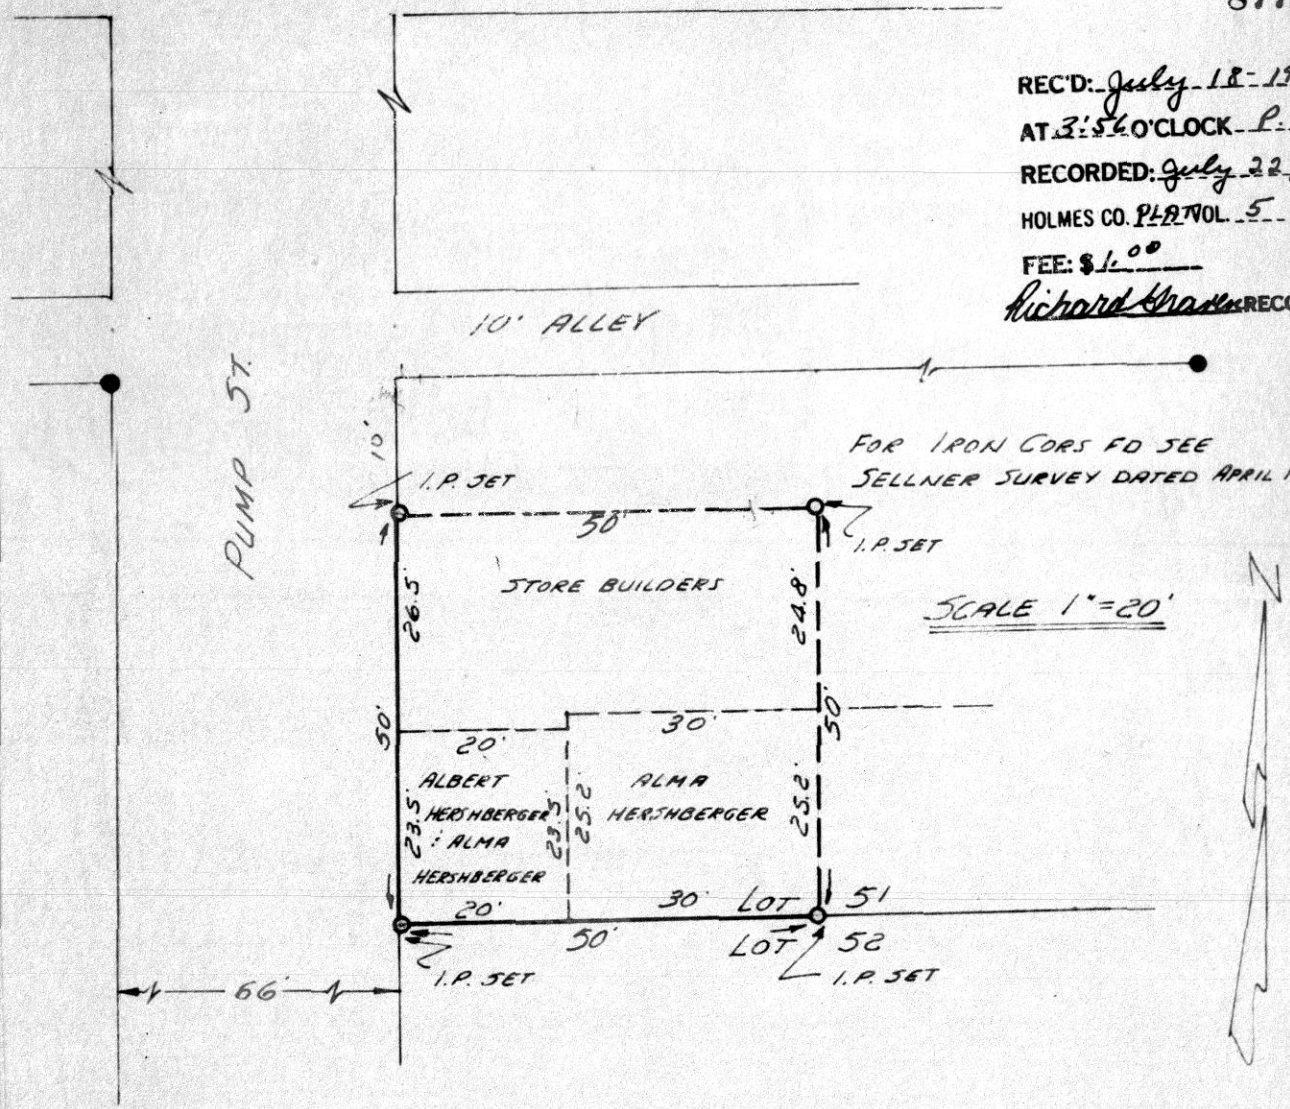 REC'D: July 18-19
AT 3:56 O'CLOCK P.
RECORDED: July 22
HOLMES CO. PLAT VOL. 5
FEE: $1.00
Richard Graven RECO
10' ALLEY
PUMP ST.
10'
I.P. SET
FOR IRON CORS FD SEE
SELLNER SURVEY DATED APRIL 1
50'
I.P. SET
STORE BUILDERS
26.5'
24.8'
SCALE 1"=20'
N
50'
20'
30'
50'
ALBERT
HERSHBERGER
: ALMA
HERSHBERGER
23.5'
23.5'
25.2'
ALMA
HERSHBERGER
25.2'
20'
30'
LOT 51
50'
LOT 52
I.P. SET
I.P. SET
66'